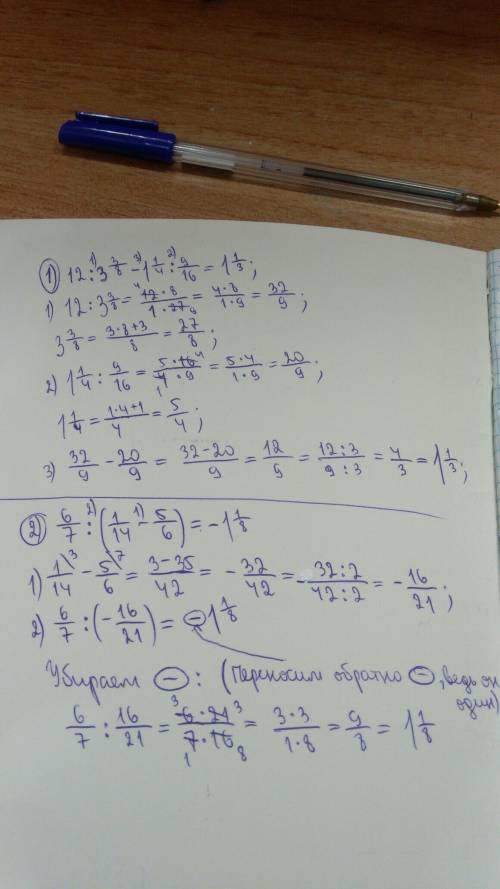 ① 12 : 3 3/8 - 1 1/4 : 9/16 = 1 1/3;
1) 12 : 3 3/8 = 12·8/1·27 = 4·8/1·9 = 32/9;
3 3/8 = 3·8+3/8 = 27/8;
2) 1 1/4 : 9/16 = 5·16/4·9 = 5·4/1·9 = 20/9;
1 1/4 = 1·4+1/4 = 5/4;
3) 32/9 - 20/9 = 32-20/9 = 12/9 = 12:3/9:3 = 4/3 = 1 1/3;
② 6/7 : (1/14 - 5/6) = -1 1/8
1) 1/14 - 5/6 = 3-35/42 = - 32/42 = - 32:2/42:2 = - 16/21;
2) 6/7 : (- 16/21) = - 1 1/8
Убираем - : (Переносим обратно -, ведь он
один)
6/7 : 16/21 = 6·21/7·16 = 3·3/1·8 = 9/8 = 1 1/8